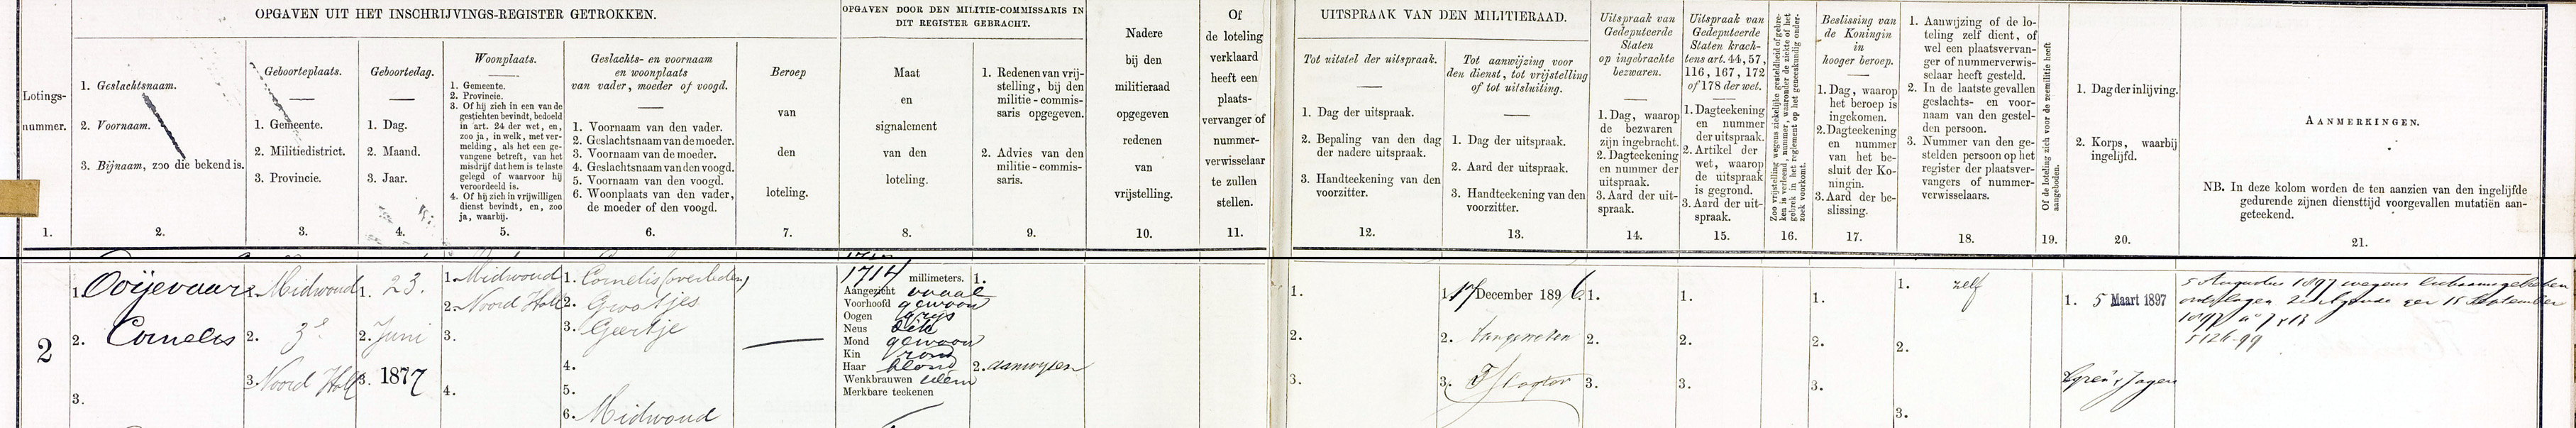 OPGAVEN UIT HET INSCHRIJVINGS-REGISTER GETROKKEN.
OPGAVEN DOOR DEN MILITIE-COMMISSARIS IN
DIT REGISTER GEBRACHT.
Lotings-
nummer.
1.
1. Geslachtsnaam.
2. Voornaam.
3. Bijnaam, zoo die bekend is.
2.
Geboorteplaats.
1. Gemeente.
2. Militiedistrict.
3. Provincie.
3.
Geboortedag.
1. Dag.
2. Maand.
3. Jaar.
4.
Woonplaats.
1. Gemeente.
2. Provincie.
3. Of hij zich in een van de
gestichten bevindt, bedoeld
in art. 24 der wet, en,
zoo ja, in welk, met ver-
melding, als het een ge-
vangene betreft, van het
misdrijf dat hem is te laste
gelegd of waarvoor hij
veroordeeld is.
4. Of hij zich in vrijwilligen
dienst bevindt, en, zoo
ja, waarbij.
5.
Geslachts- en voornaam
en woonplaats
van vader, moeder of voogd.
1. Voornaam van den vader.
2. Geslachtsnaam van de moeder.
3. Voornaam van de moeder.
4. Geslachtsnaam van den voogd.
5. Voornaam van den voogd.
6. Woonplaats van den vader,
de moeder of den voogd.
6.
Beroep
van
den
loteling.
7.
Maat
en
signalement
van den
loteling.
8.
1. Redenen van vrij-
stelling, bij den
militie-commis-
saris opgegeven.
2. Advies van den
militie-commis-
saris.
9.
Nadere
bij den
militieraad
opgegeven
redenen
van
vrijstelling.
10.
Of
de loteling
verklaard
heeft een
plaats-
vervanger of
nummer-
verwisselaar
te zullen
stellen.
11.
UITSPRAAK VAN DEN MILITIERAAD.
Tot uitstel der uitspraak.
1. Dag der uitspraak.
2. Bepaling van den dag
der nadere uitspraak.
3. Handteekening van den
voorzitter.
12.
Tot aanwijzing voor
den dienst, tot vrijstelling
of tot uitsluiting.
1. Dag der uitspraak.
2. Aard der uitspraak.
3. Handteekening van den
voorzitter.
13.
Uitspraak van
Gedeputeerde
Staten
op ingebrachte
bezwaren.
1. Dag, waarop
de bezwaren
zijn ingebracht.
2. Dagteekening
en nummer der
uitspraak.
3. Aard der uit-
spraak.
14.
Uitspraak van
Gedeputeerde
Staten krach-
tens art. 44, 57,
116, 167, 172
of 178 der wet.
1. Dagteekening
en nummer
der uitspraak.
2. Artikel der
wet, waarop
de uitspraak
is gegrond.
3. Aard der uit-
spraak.
15.
Zoo vrijstelling wegens ziekelijke gesteldheid of gebre-
ken is verleend, nummer, waaronder de ziekte of het
gebrek in het reglement op het geneeskundig onder-
zoek voorkomt.
16.
Beslissing van
de Koningin
in
hooger beroep.
1. Dag, waarop
het beroep is
ingekomen.
2. Dagteekening
en nummer
van het be-
sluit der Ko-
ningin.
3. Aard der be-
slissing.
17.
1. Aanwijzing of de lo-
teling zelf dient, of
wel een plaatsvervan-
ger of nummerverwis-
selaar heeft gesteld.
2. In de laatste gevallen
geslachts- en voor-
naam van den gestel-
den persoon.
3. Nummer van den ge-
stelden persoon op het
register der plaatsver-
vangers of nummer-
verwisselaars.
18.
Of de loteling zich voor de zeemilitie heeft
aangeboden.
19.
1. Dag der inlijving.
2. Korps, waarbij
ingelijfd.
20.
AANMERKINGEN.
NB. In deze kolom worden de ten aanzien van den ingelijfde
gedurende zijnen diensttijd voorgevallen mutatiën aan-
geteekend.
21.
2
1. Ooijevaar
2. Cornelis
3.
1. Midwoud
2. 3e
3. Noord Holl
1. 23.
2. Juni
3. 1877
1. Midwoud
2. Noord Holl
3.
4.
1. Cornelis (overleden)
2. Grootjes
3. Geertje
4.
5.
6. Midwoud
1714 millimeters.
Aangezicht ovaal
Voorhoofd gewoon
Oogen grijs
Neus dik
Mond gewoon
Kin rond
Haar blond
Wenkbrauwen idem
Merkbare teekenen
1.
2. aanwijzen
1.
2.
3.
1. 17 December 1896.
2. Aangewezen
3.
1.
2.
3.
1.
2.
3.
1.
2.
3.
1. zelf
2.
3.
1. 5 Maart 1897
5 Augustus 1897 wegens lichaamsgebreken
ontslagen